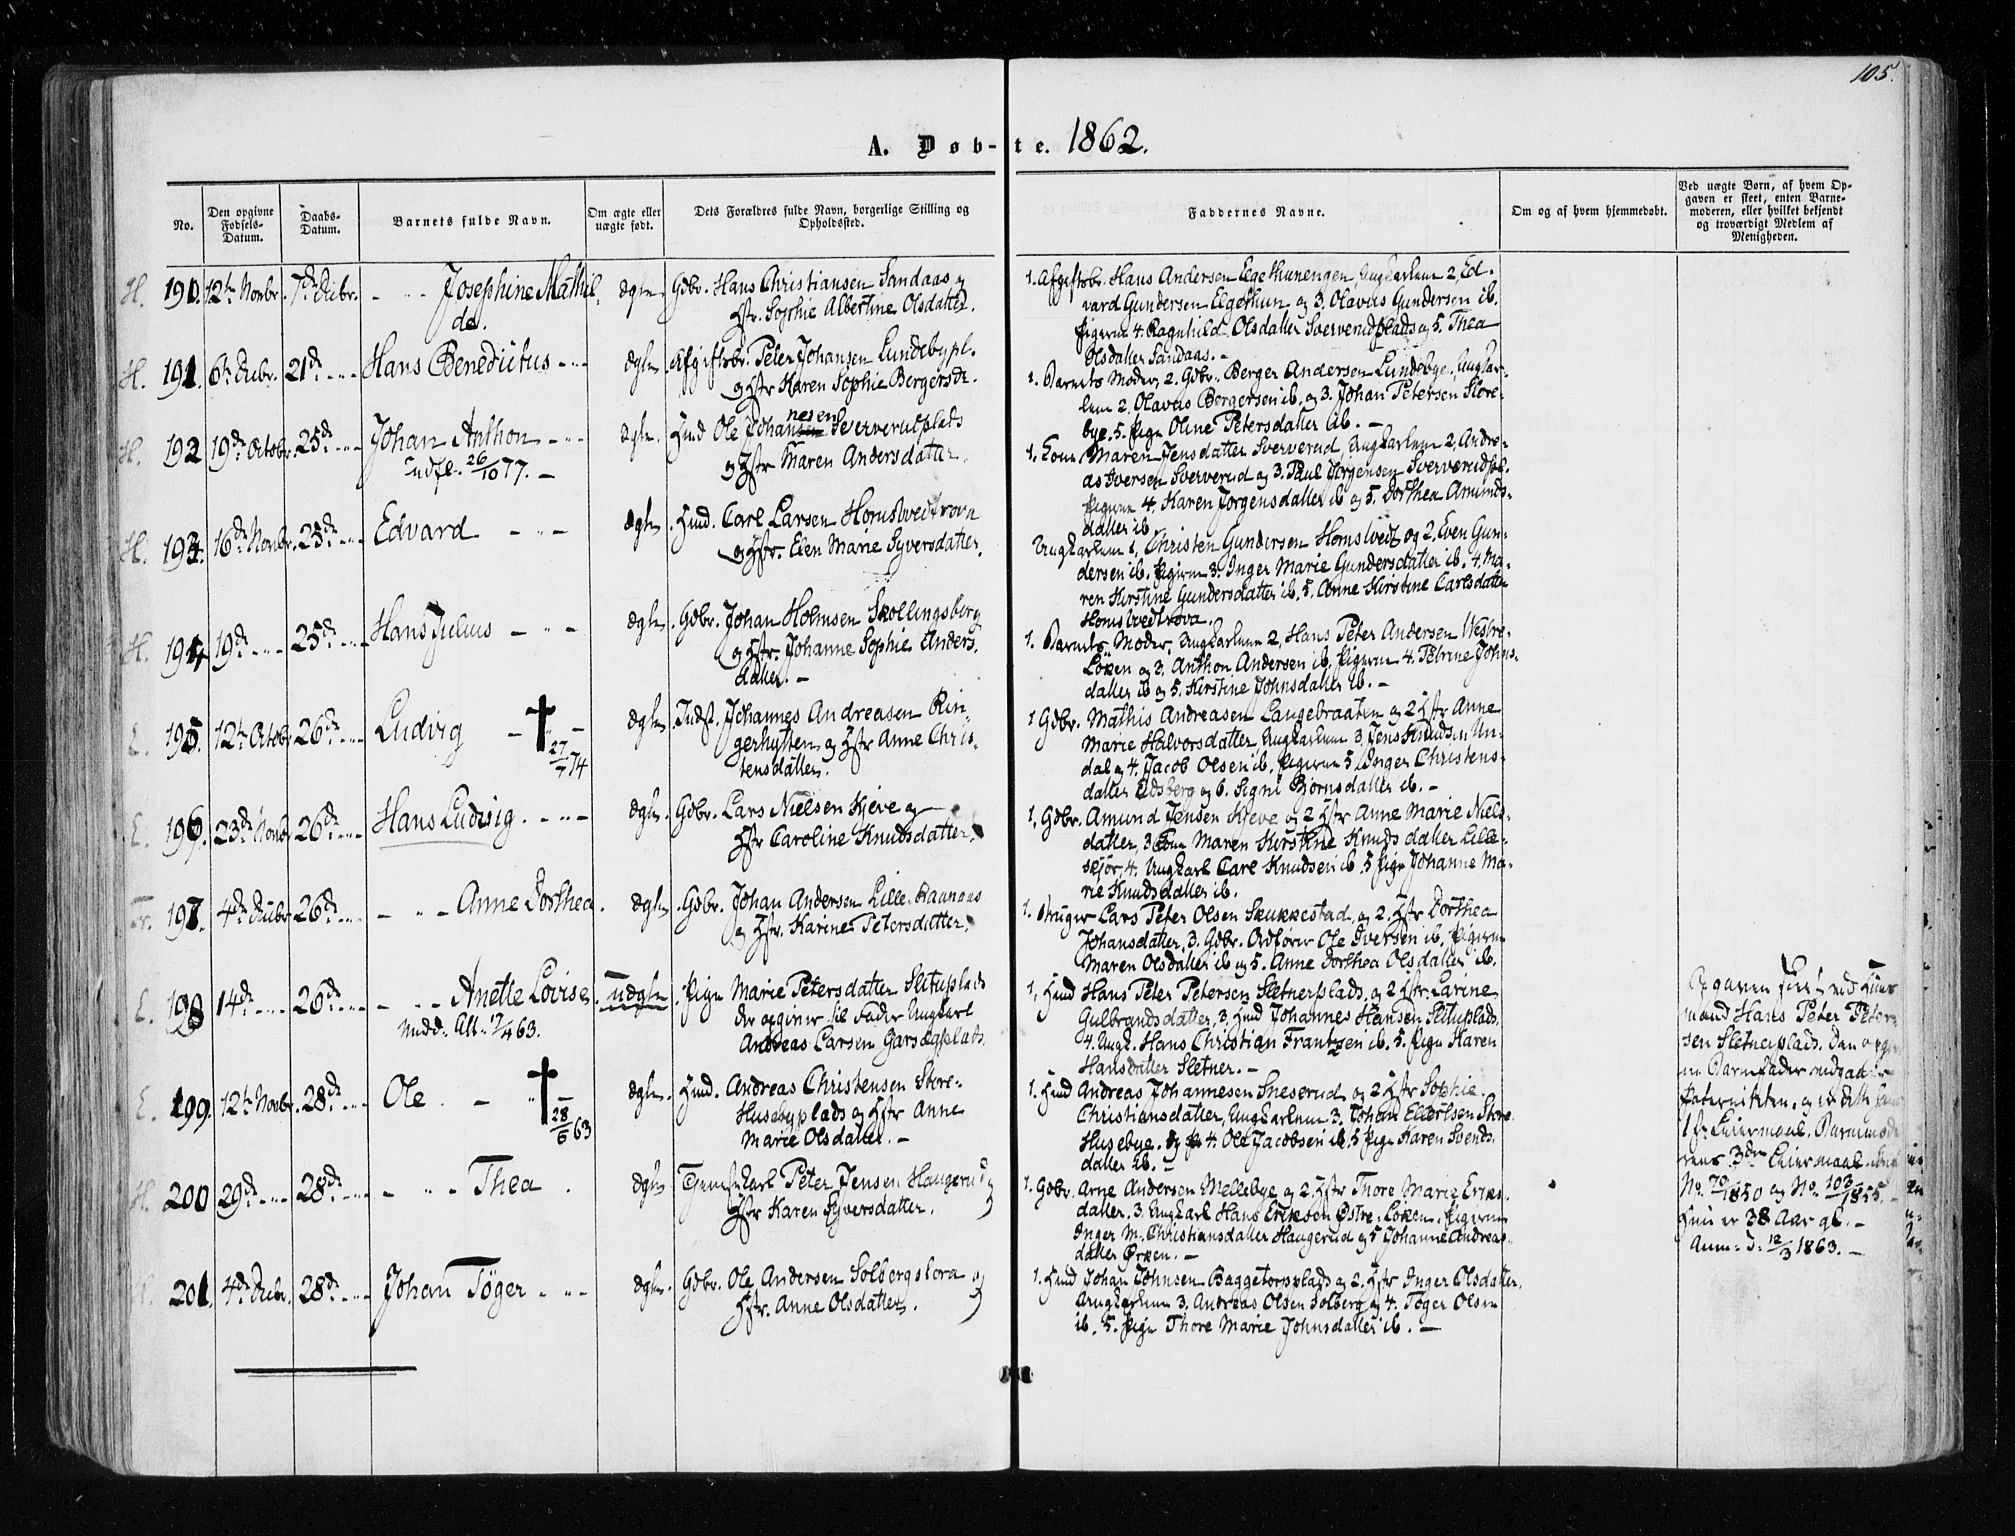 105.
A. Døb-te. 1862.
No.
Den opgivne Fødsels-Datum.
Daabs-Datum.
Barnets fulde Navn.
Om ægte eller uægte født.
Dets Forældres fulde Navn, borgerlige Stilling og Opholdssted.
Faddernes Navne.
Om og af hvem hjemmedøbt.
Ved uægte Børn, af hvem Op-
gaven er skeet, enten Barne-
moderen, eller hvilket bekjendt
og troværdigt Medlem af
Menigheden.
H. 190. 12te Novbr. 7de Decbr. - " - Josephine Mathil-
de.
ægte. Gdbr. Hans Christiansen Sandaas og
Hstr. Sophie Albertine Olsdatter.
1. Afgiftsbr. Hans Andersen Egethunengen, Ungkarlene 2, Ed-
vard Gundersen Elgethun og 3. Olavus Gundersen ib.
Pigerne 4. Ragnhild Olsdatter Sververudplads og 5. Thea
Olsdatter Sandaas. -
H. 191. 6te Decbr. 21de - " - Hans Benedictus - " -
ægte. Afgiftsbr. Peter Johansen Lundebypl.
og Hstr Karen Sophie Bergersdr.
1. Barnets Moder, 2. Gdbr. Berger Andersen Lundebye, Ungkar-
lene 2. Olavus Bergersen ib. og 3. Johan Petersen Store-
bye. 5. Pige Oline Petersdatter ib. -
H. 192 19de Octobr. 25de - " - Johan Anthon - " -
udfl. 26/10 77. -
ægte. Hmd Ole Johannesen Sververudplads
og Hstr Maren Andersdatter.
1. Kone Maren Jensdatter Sververud, Ungkarlene 2, Andre-
as Iversen Sververud og 3. Paul Jørgensen Sververudpl.
Pigerne 4. Karen Jørgensdatter ib og 5. Dorthea Amunds-
datter ib
H. 193. 16de Novbr. 25de - " - Edvard - " -
ægte. Hmd. Carl Larsen Hornslvedtrova
og Hstr. Elen Marie Syversdatter.
Ungkarlene 1, Christen Gundersen Hornslvedt og 2, Even Gun-
dersen ib. Pigerne 3. Inger Marie Gundersdatter ib. 4. Ma-
ren Kirstine Gundersdatter ib. 5. Anne Kirstine Carlsdatter
Hornslvedtrova.
H. 194 19de - " - 25de - " - Hans Julius - " -
ægte. Gdbr. Johan Holmsen Skollingsberg
og Hstr. Johanne Sophie Anders-
datter. -
1. Barnets Moder, Ungkarlene 2, Hans Peter Andersen Westre-
Løken og 3. Anthon Andersen ib. Pigerne 4. Petrine Johns-
datter ib og 5. Kirstine Johnsdatter ib. -
E. 195. 12te Octobr 26de - " - Ludvig - † 27/7 74
ægte. Indst. Johannes Andreasen Rin-
gerhytten og Hstr Anne Chris-
tensdatter.
1 Gdbr. Mathis Andreasen Langebraaten og 2 Hstr Anne
Marie Halvorsdatter, Ungkarlene 3, Jens Knudsen Un-
dal og 4. Jacob Olsen ib. Pigerne 5 Inger Christens-
datter Eidsberg og 6. Signi Bjørnsdatter ib. -
E. 196. 23de Novbr 26de - " - Hans Ludvig. - " -
ægte. Gdbr. Lars Nielsen Kjeve og
Hstr Caroline Knudsdatter.
1. Gdbr. Amund Jensen Kjeve og 2 Hstr Anne Marie Niels-
datter, 3 Kone Maren Kirstine Knudsdatter Lille-
skjør, 4. Ungkarl Carl Knudsen ib. 5 Pige Johanne Ma-
rie Knudsdatter ib.
Tr. 197. 4de Decbr 26de - " - - " - Anne Dorthea.
ægte. Gdbr. Johan Andersen Lille-Raanaas
og Hstr. Karine Petersdatter.
1. Bruger Lars Peter Olsen Skukkestad, og 2. Hstr Dorthea
Johansdatter, 3. Gdbr. Ordfører Ole Iversen ib, Pigerne
Maren Olsdatter ib og 5. Anne Dorthea Olsdatter ib.
E. 198 14de - " - 26de - " - - " - Anette Lovise.
Medd. Att. 17/4 63.
uægte. Pige Marie Petersdatter Slituplads
der opgiver til Fader Ungkarl
Andreas Larsen Garsegplads.
1. Hmd Hans Peter Petersen Sletnerplads, og 2 Hstr. Larine
Gulbrandsdatter, 3. Hmd Johannes Hansen Slituplads,
4. Ungk. Hans Christian Frantzen ib. 5. Pige Karen
Hansdatter Sletner. -
Opgaven skeet ved Huus-
mand Hans Peter Peter-
sen Sletnerplads. Den opgiv-
ne Barnefader vedgaaer
Paterniteten, og er dette hans
1ste Leiermaal, Barnemode-
rens 3die Leiermaal
No. 70/1850 og No. 103/1855. -
Hun er 38 Aar gl. -
Anm. d. 12/3 1863. -
E. 199. 12te Novbr. 28de - " - Ole. - " † 28/6 63
ægte. Hmd. Andreas Christensen Store-
Husebyplads og Hstr Anne
Marie Olsdatter. -
1. Hmd Andreas Johannesen Sneserud og 2 Hstr Sophie
Christiansdatter, Ungkarlene 3. Johan Ellefsen Store
Husebye. 4. Ole Jacobsen ib. 5 Pige Karen Svends-
datter ib. -
H. 200 29de - " - 28de - " - - " - Thea.
ægte Tjenestekarl Peter Jensen Haugerud og
Hstr Karen Syversdatter.
1. Gdbr. Arne Andersen Mellebye og 2. Hstr Thore Marie Eriks-
datter. 3. Ungkarl Hans Erikson Østre-Løken. Pigerne
Inger M. Christiansdatter Haugerud og 5 Johanne Andreas-
datter Ørken. -
H. 201. 4de Decbr. 28de - " - Johan Tøger - " -
ægte. Gdbr. Ole Andersen Solbergstora og
Hstr. Anne Olsdatter.
1. Hmd Johan Johnsen Baggetorpplads og 2. Hstr Inger Olsdatter,
Ungkarlene 3. Andreas Olsen Solberg og 4. Tøger Olsen
ib. 5. Pige Thore Marie Johnsdatter ib. -